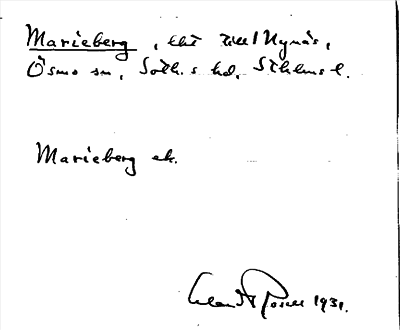 Marieberg, lht till Nynäs,
Ösmo sn, Soth.s hd, Sthlms l.
Marieberg ek.
1931.